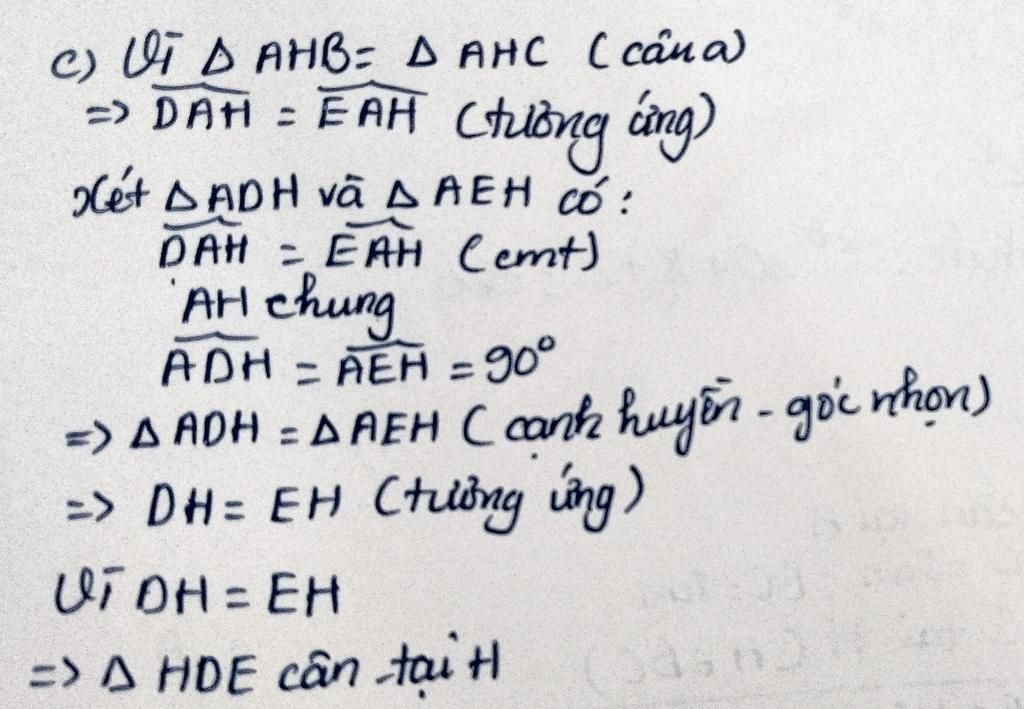 c) Vì Δ AHB = Δ AHC (câu a)
=> \widehat{DAH} = \widehat{EAH} (tương ứng)
Xét Δ ADH và Δ AEH có:
\widehat{DAH} = \widehat{EAH} (cmt)
AH chung
\widehat{ADH} = \widehat{AEH} = 90°
=> Δ ADH = Δ AEH (cạnh huyền - góc nhọn)
=> DH = EH (tương ứng)
Vì DH = EH
=> Δ HDE cân tại H